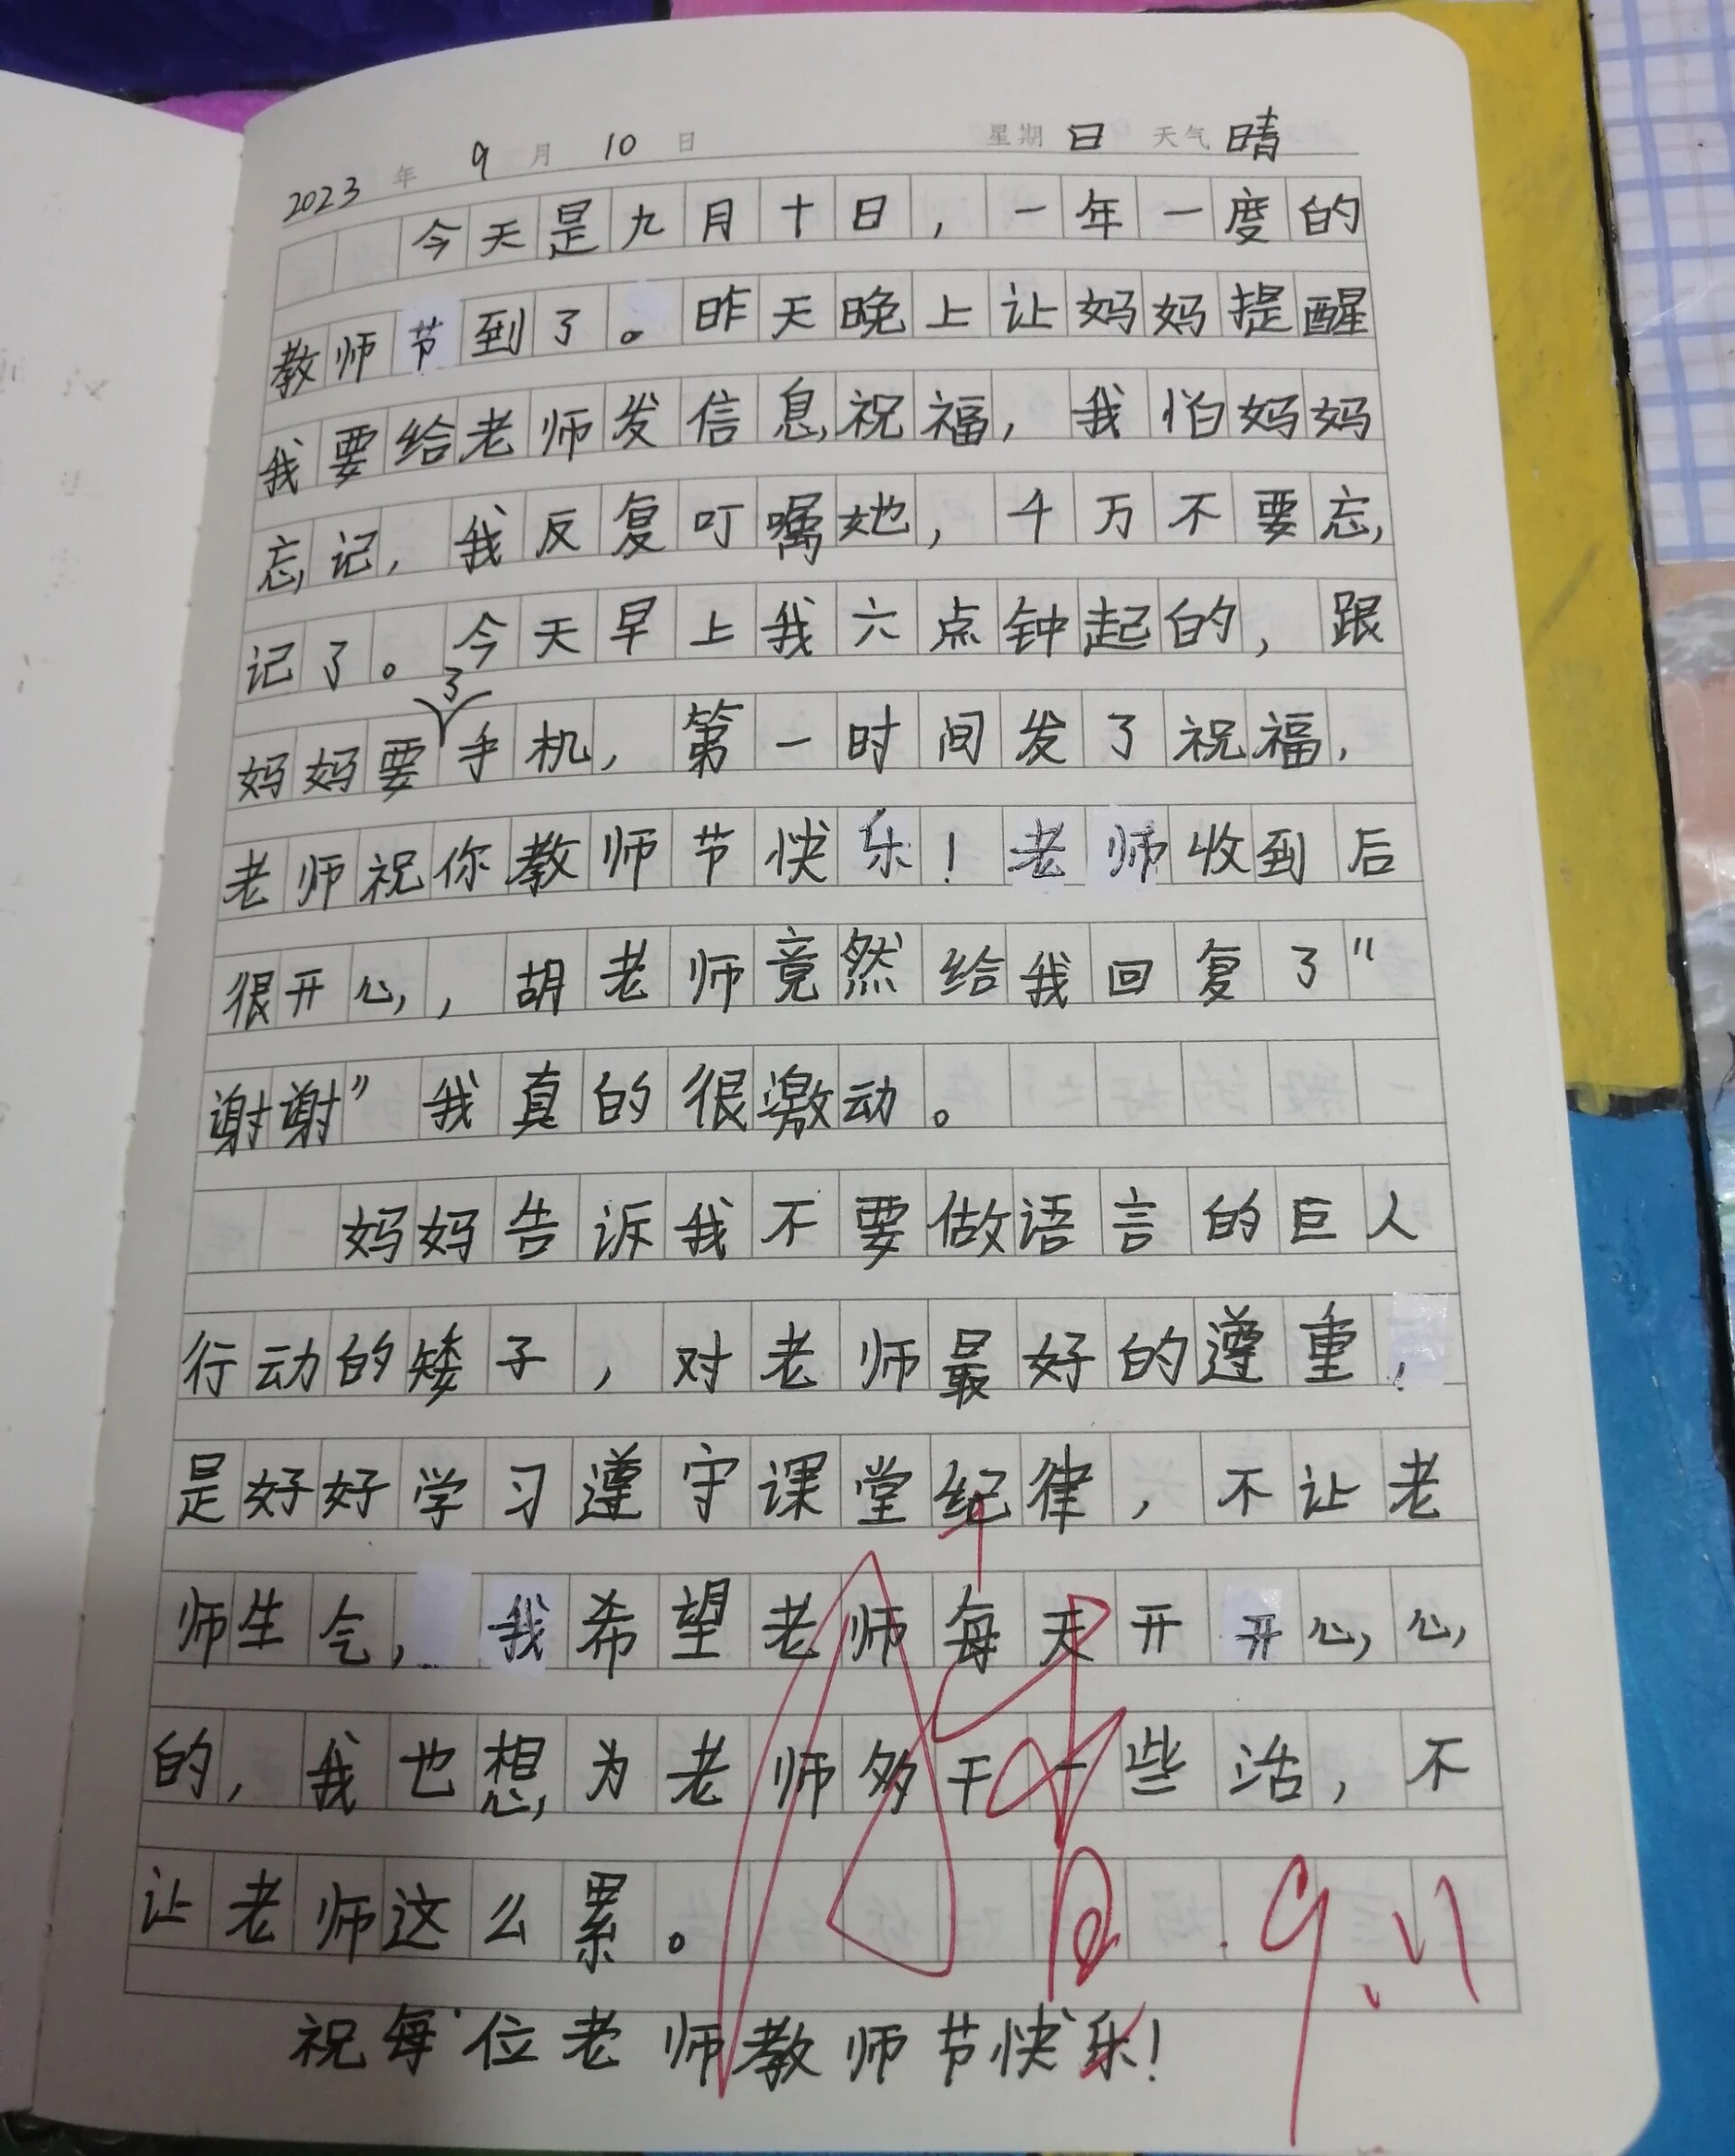 2023年 9月 10日 星期日 天气晴
今天是九月十日，一年一度的
教师节到了。昨天晚上让妈妈提醒
我要给老师发信息祝福，我怕妈妈
忘记，我反复叮嘱她，千万不要忘
记了。今天早上我六点钟起的，跟
妈妈要了手机，第一时间发了祝福，
老师祝你教师节快乐！老师收到后
很开心，胡老师竟然给我回复了"
谢谢"我真的很激动。
妈妈告诉我不要做语言的巨人
行动的矮子，对老师最好的遵重，
是好好学习遵守课堂纪律，不让老
师生气，我希望老师每天开开心心
的，我也想为老师多干一些活，不
让老师这么累。
祝每位老师教师节快乐！
9.11